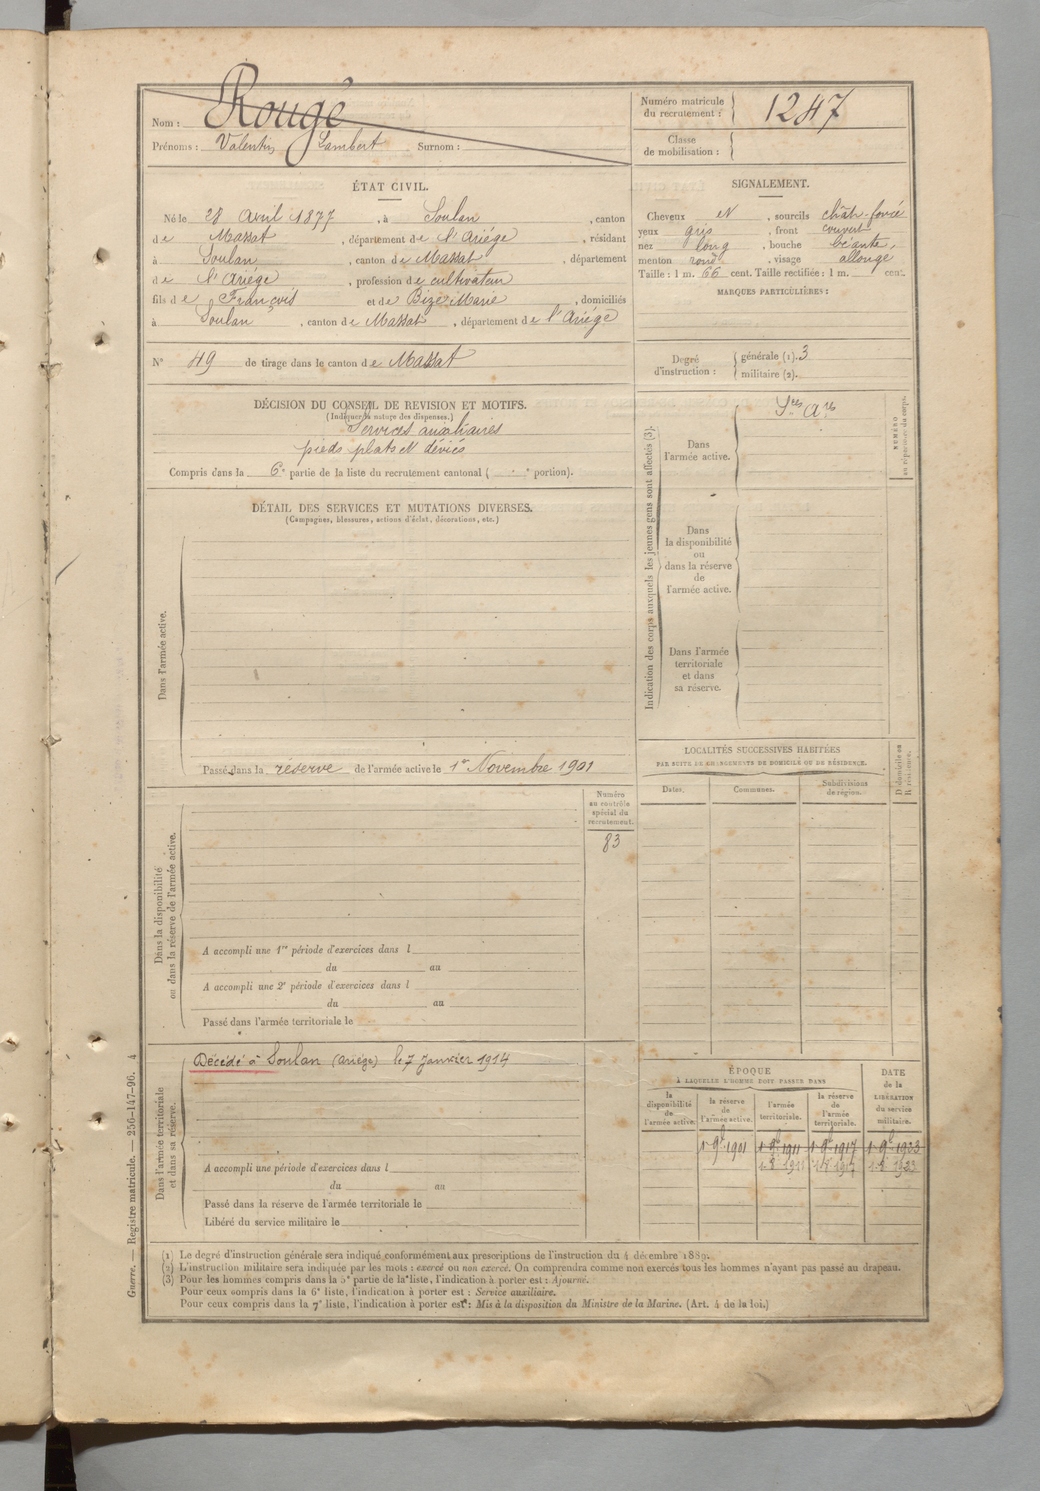 Nom : Rougé
Prénoms : Valentin Lambert Surnom :
Numéro matricule du recrutement : 1247
Classe de mobilisation :
ÉTAT CIVIL.
Né le 28 Avril 1877, à Soulan, canton
de Massat, département de l'Ariége, résidant
à Soulan, canton de Massat, département
de l'Ariége, profession de cultivateur
fils de François et de Bize Marie, domiciliés
à Soulan, canton de Massat, département de l'Ariége
SIGNALEMENT.
Cheveux et sourcils chât-foncé
yeux gris, front couvert
nez long, bouche béante,
menton rond, visage allongé
Taille : 1 m. 66 cent. Taille rectifiée : 1 m. cent.
MARQUES PARTICULIÈRES :
N° 49 de tirage dans le canton de Massat
Degré d'instruction : générale (1). 3
militaire (2).
DÉCISION DU CONSEIL DE REVISION ET MOTIFS.
(Indiquer la nature des dispenses.)
Services auxiliaires
pieds plats et déviés
Compris dans la 6e partie de la liste du recrutement cantonal ( e portion).
DÉTAIL DES SERVICES ET MUTATIONS DIVERSES.
(Campagnes, blessures, actions d'éclat, décorations, etc.)
Dans l'armée active.
Passé dans la réserve de l'armée active le 1er Novembre 1901
Indication des corps auxquels les jeunes gens sont affectés (3).
Dans l'armée active.
Sces Ares
NUMÉRO
au répertoire du corps.
Dans
la disponibilité
ou
dans la réserve
de
l'armée active.
Dans l'armée
territoriale
et dans
sa réserve.
LOCALITÉS SUCCESSIVES HABITÉES
PAR SUITE DE CHANGEMENTS DE DOMICILE OU DE RÉSIDENCE.
Dates.
Communes.
Subdivisions de région.
D domicile ou
R résidence.
Dans la disponibilité
ou dans la réserve de l'armée active.
Numéro
au contrôle
spécial du
recrutement.
83
A accompli une 1re période d'exercices dans l
du au
A accompli une 2e période d'exercices dans l
du au
Passé dans l'armée territoriale le
Dans l'armée territoriale
et dans sa réserve.
Décédé à Soulan (Ariège) le 7 Janvier 1914
A accompli une période d'exercices dans l
du au
Passé dans la réserve de l'armée territoriale le
Libéré du service militaire le
ÉPOQUE
A LAQUELLE L'HOMME DOIT PASSER DANS
la disponibilité de l'armée active.
la réserve de l'armée active.
l'armée territoriale.
la réserve de l'armée territoriale.
DATE de la LIBÉRATION du service militaire.
1er 9bre 1901 1er 9bre 1911 1er 9bre 1917 1er 9bre 1923
(1) Le degré d'instruction générale sera indiqué conformément aux prescriptions de l'instruction du 4 décembre 1889.
(2) L'instruction militaire sera indiquée par les mots : exercé ou non exercé. On comprendra comme non exercés tous les hommes n'ayant pas passé au drapeau.
(3) Pour les hommes compris dans la 5e partie de la liste, l'indication à porter est : Ajourné.
Pour ceux compris dans la 6e liste, l'indication à porter est : Service auxiliaire.
Pour ceux compris dans la 7e liste, l'indication à porter est : Mis à la disposition du Ministre de la Marine. (Art. 4 de la loi.)
Guerre. — Registre matricule. — 256-147-96. 4